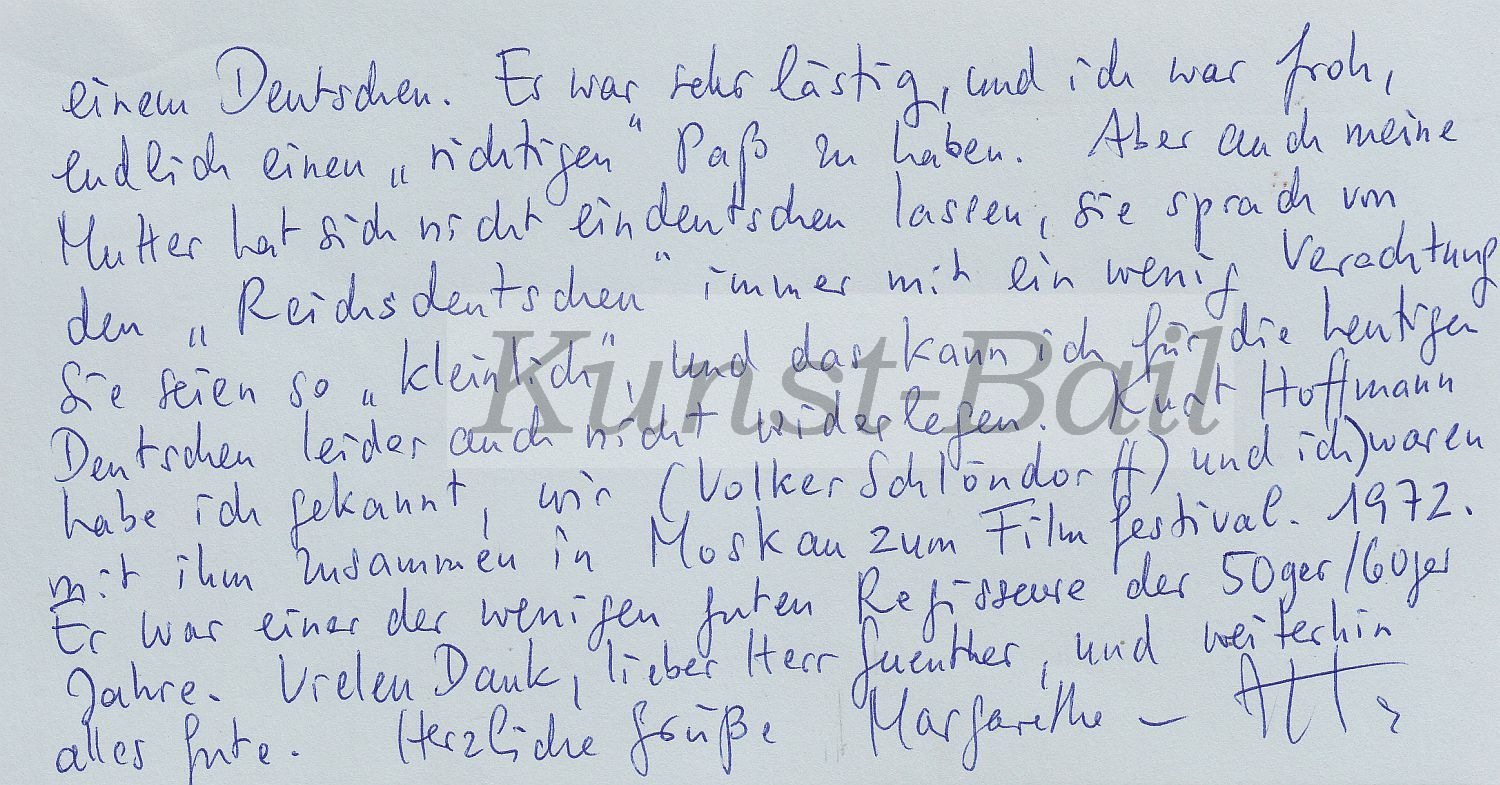 einem Deutschen. Es war sehr lästig, und ich war froh,
endlich einen „richtigen“ Paß zu haben. Aber auch meine
Mutter hat sich nicht eindeutschen lassen, sie sprach von
den „Reichsdeutschen“ immer mit ein wenig Verachtung
Sie seien so „kleinlich“, und das kann ich für die heutigen
Deutschen leider auch nicht widerlegen. Kurt Hoffmann
habe ich gekannt, wir (Volker Schlöndorff) und ich) waren
mit ihm zusammen in Moskau zum Filmfestival. 1972.
Er war einer der wenigen guten Regisseure der 50ger/60ger
Jahre. Vielen Dank, lieber Herr Guenther, und weiterhin
alles gute. Herzliche Grüße Margarethe –
Kunst-Bail